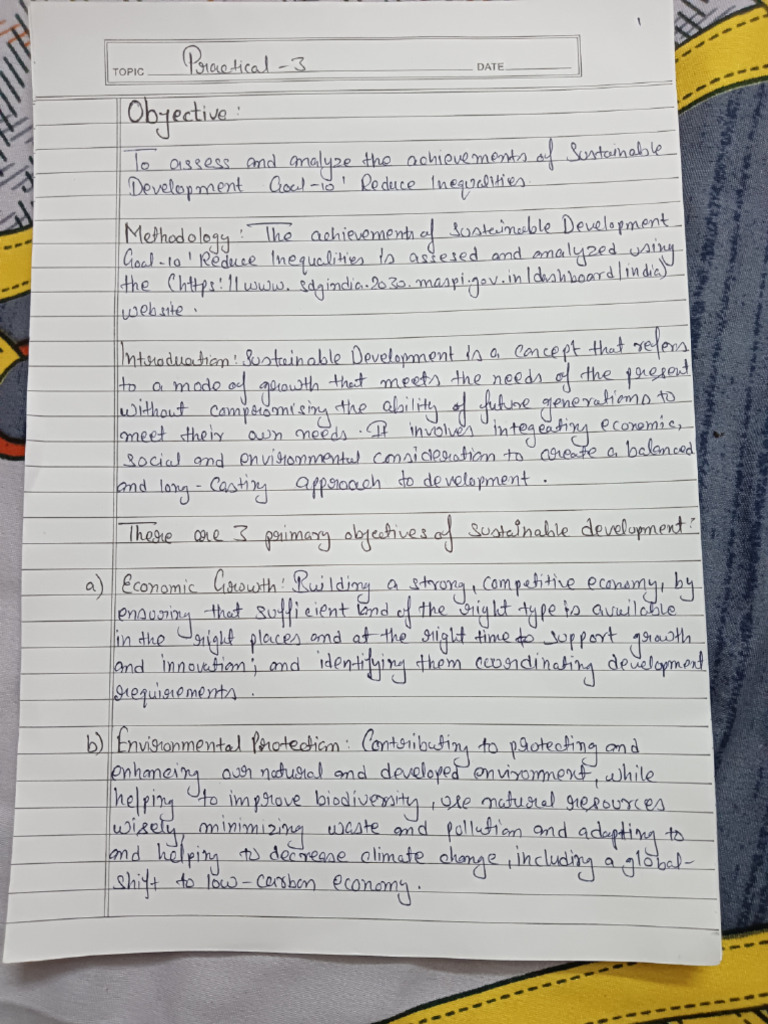 1
TOPIC Practical - 3 DATE
Objective :
To assess and analyze the achievements of Sustainable
Development Goal-10' Reduce Inequalities
Methodology : The achievement of Sustainable Development
Goal-10' Reduce Inequalities is assesed and analyzed using
the (https://www.sdgindia.2030.maspi.gov.in/dashboard/india)
website .
Introduction : Sustainable Development is a concept that refers
to a mode of growth that meets the needs of the present
without compromising the ability of future generations to
meet their own needs. It involves integrating economic,
social and environmental consideration to create a balanced
and long-Casting approach to development .
There are 3 primary objectives of sustainable development:
a) Economic Growth: Building a strong, competitive economy, by
ensuring that sufficient land of the right type is available
in the right places and at the right time to support growth
and innovation; and identifying them coordinating development
requirements .
b) Environmental Protection: Contributing to protecting and
enhancing our natural and developed environment, while
helping to improve biodiversity, use natural resources
wisely, minimizing waste and pollution and adapting to
and helping to decrease climate change, including a global-
shift to low-carbon economy.